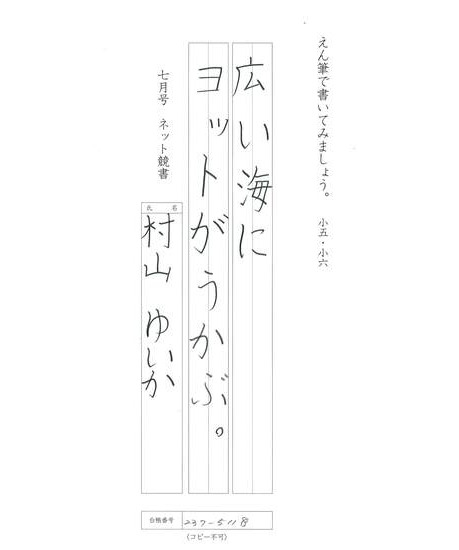 えん筆で書いてみましょう。
小五・小六
広い海に
ヨットがうかぶ。
七月号 ネット競書
氏名
村山 ゆいか
合格番号 237-5118
(コピー不可)